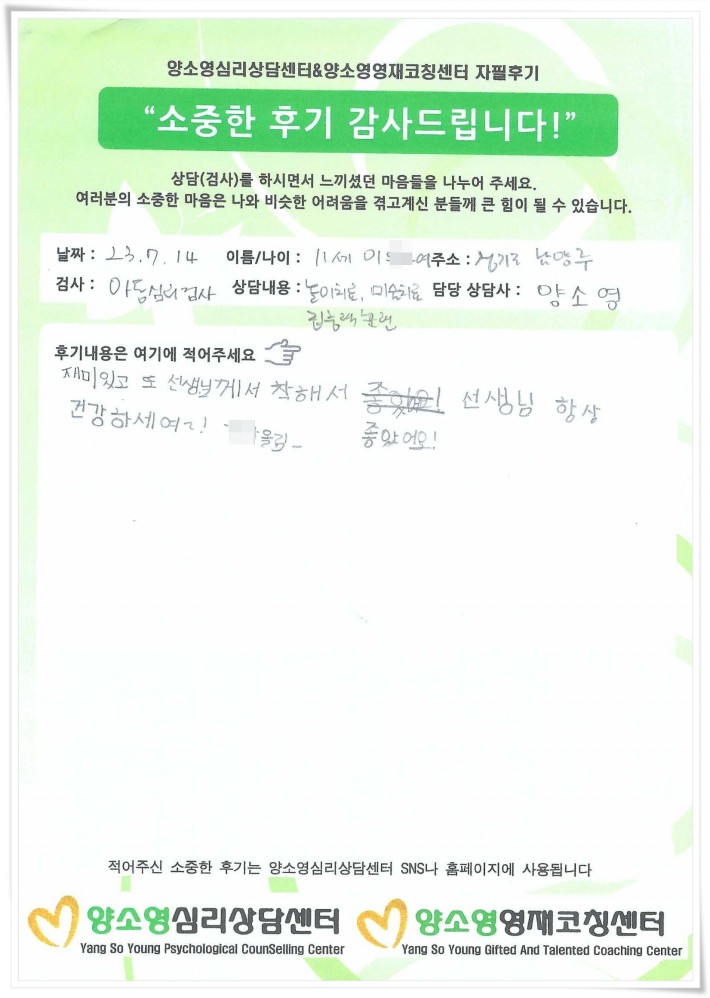 양소영심리상담센터&양소영영재코칭센터 자필후기
“소중한 후기 감사드립니다!”
상담(검사)를 하시면서 느끼셨던 마음들을 나누어 주세요.
여러분의 소중한 마음은 나와 비슷한 어려움을 겪고계신 분들께 큰 힘이 될 수 있습니다.
날짜 : 23.7.14 이름/나이 : 11세 이 여 주소 : 경기도 남양주
검사 : 아동심리검사 상담내용 : 놀이치료, 미술치료 담당 상담사 : 양소영
집중력훈련
후기내용은 여기에 적어주세요
재미있고 또 선생님께서 착해서 좋았어요! 선생님 항상
건강하세여~! 올림_ 좋았어요!
적어주신 소중한 후기는 양소영심리상담센터 SNS나 홈페이지에 사용됩니다
양소영심리상담센터 양소영영재코칭센터
Yang So Young Psychological CounSelling Center Yang So Young Gifted And Talented Coaching Center